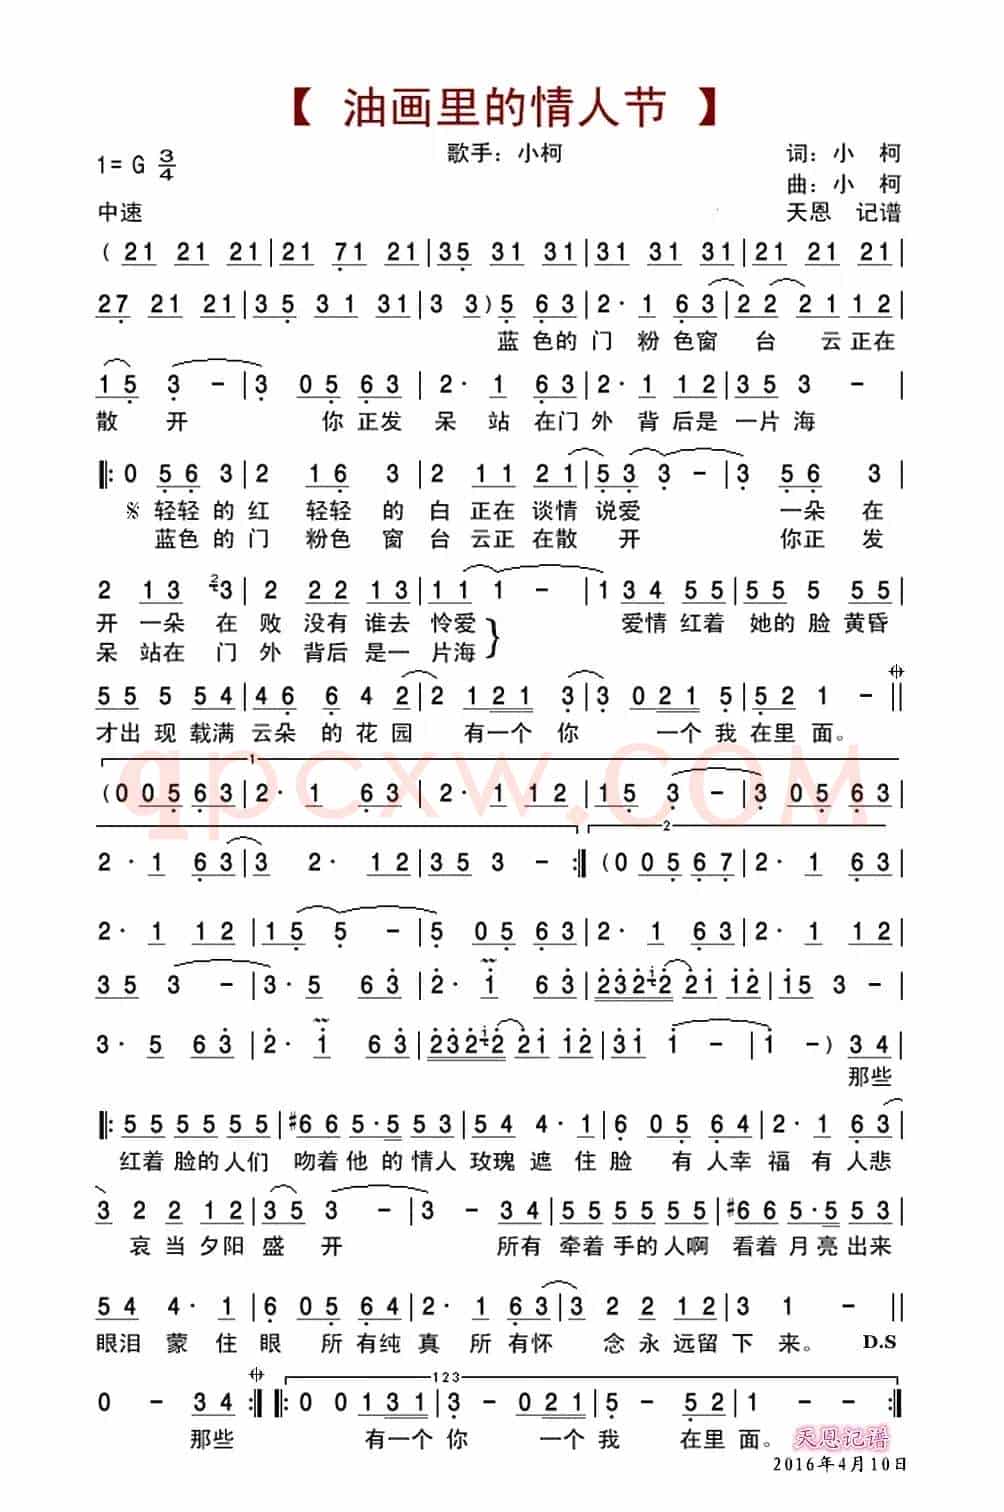 【 油画里的情人节 】
1= G 3/4
歌手：小柯
词：小 柯
曲：小 柯
中速
天恩 记谱
( 21 21 21 | 21 71 21 | 35 31 31 | 31 31 31 | 21 21 21 |
27 21 21 | 35 31 31 | 3 3 ) 5 63 | 2· 1 63 | 22 21 12 |
蓝 色的 门 粉 色窗 台 云 正在
15 3 - | 3 05 63 | 2· 1 63 | 2· 1 12 | 35 3 - |
散 开 你 正发 呆 站 在门 外 背 后是 一片 海
‖: 0 56 3 | 2 16 3 | 2 11 21 | 53 3 - | 3 56 3 |
※ 轻轻 的 红 轻轻 的 白 正在 谈情 说爱 一朵 在
蓝色 的 门 粉色 窗 台 云正 在散 开 你正 发
2 13 2 3 | 2 22 31 | 11 1 - | 1 34 55 | 5 5 55 |
开 一朵 在 败 没有 谁去 怜爱 爱情 红着 她的 脸 黄昏
呆 站在 门 外 背后 是一 片海
55 5 54 | 46 6 4 2 | 2 121 3 | 3 021 5 | 52 1 - ‖
才出 现 载满 云朵 的 花 园 有一个 你 一个 我 在里 面。
1
( 0 05 63 | 2· 1 63 | 2· 1 12 | 15 3 - | 3 05 63 |
2
2· 1 63 | 3 2· 12 | 35 3 - :‖ ( 0 05 67 | 2· 1 63 |
2· 1 12 | 15 5 - | 5 05 63 | 2· 1 63 | 2· 1 12 |
35 3 - | 3· 5 63 | 2· 1 63 | 2321 2 21 12 | 15 3 - |
3· 5 63 | 2· 1 63 | 2321 2 21 12 | 31 1 - | 1 - ) 34 |
那些
‖: 55 55 55 | #66 5·5 53 | 54 4· 1 | 6 05 64 | 2· 1 63 |
红着 脸的 人们 吻着 他 的 情人 玫瑰 遮 住 脸 有 人幸 福 有 人悲
3 2 2 12 | 35 3 - | 3 - 34 | 55 55 55 | #66 5·5 53 |
哀 当 夕阳 盛 开 所有 牵着 手的 人啊 看着 月 亮 出来
54 4· 1 | 6 05 64 | 2· 1 63 | 3 2 2 12 | 3 1 - ‖
眼泪 蒙 住 眼 所 有纯 真 所 有怀 念 永 远留 下 来。 D.S
123
0 - 34 :‖: 0 0 131 | 3 - 021 | 5 - 52 | 1 - - :‖
那些 有一个 你 一个 我 在里 面。
天恩记谱
2016年4月10日
qpcxw.com